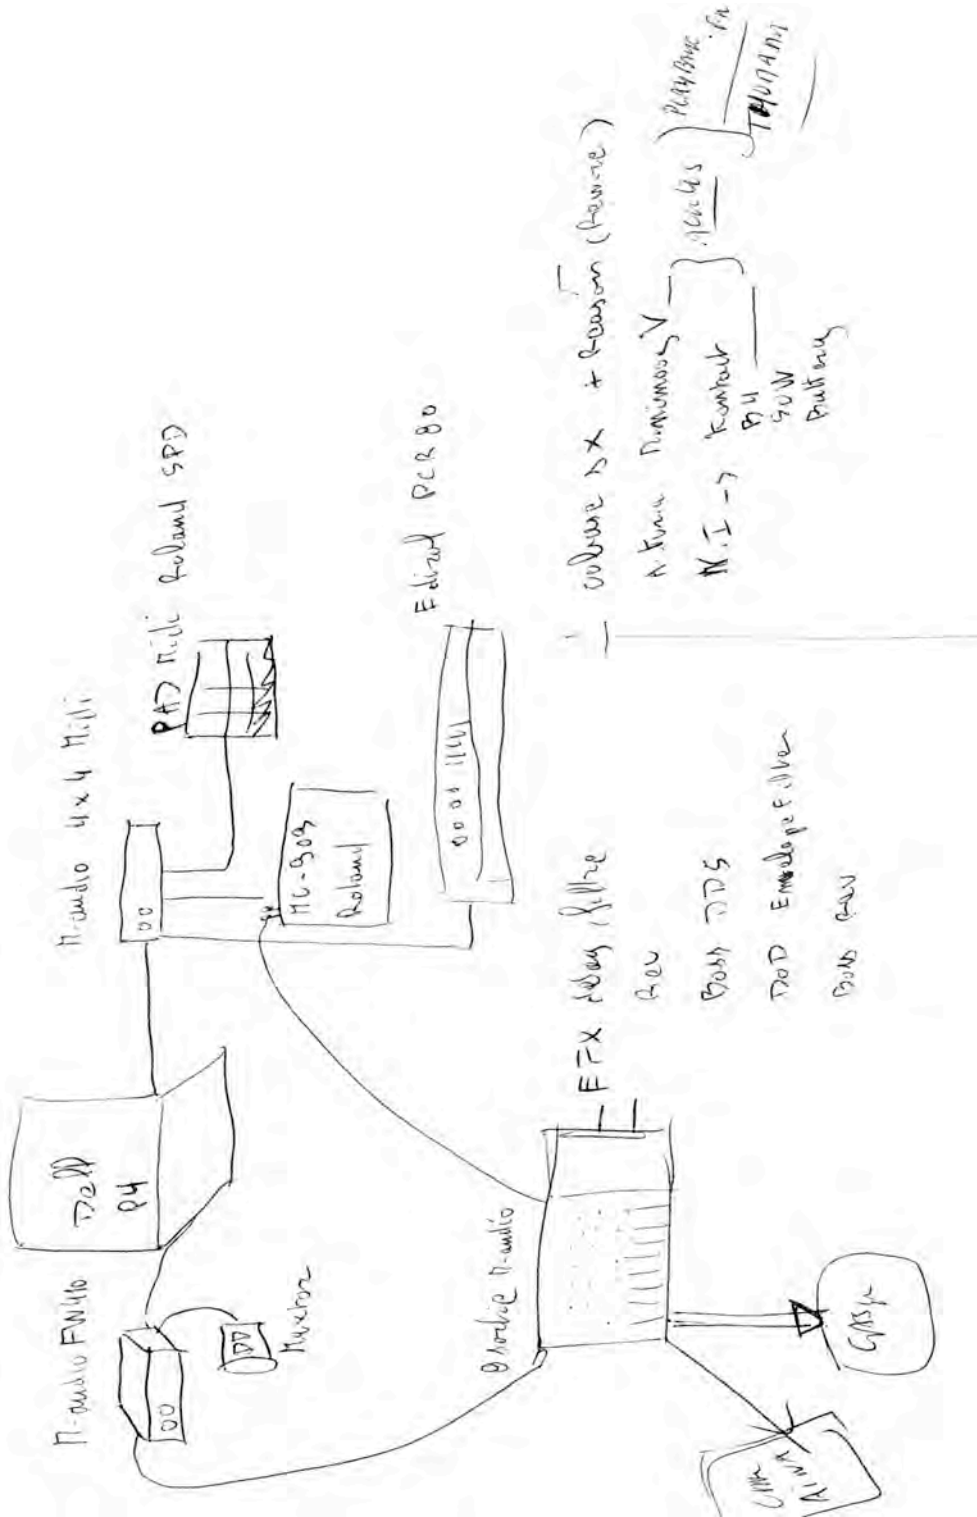 M-audio FW410
Dell
P4
M-audio 4x4 Midi
PAD Midi Roland SPD
MC-909
Roland
Edirol PCR 80
Maxtor
M-audio
EFX delay filtre
Rev
Boss DD5
DOD Envelope Filter
Boss Rev
Cubase SX + Reason (Rewire)
Arturia Minimoog V
N.I -> Kontakt
B4
Battery
THOMANN